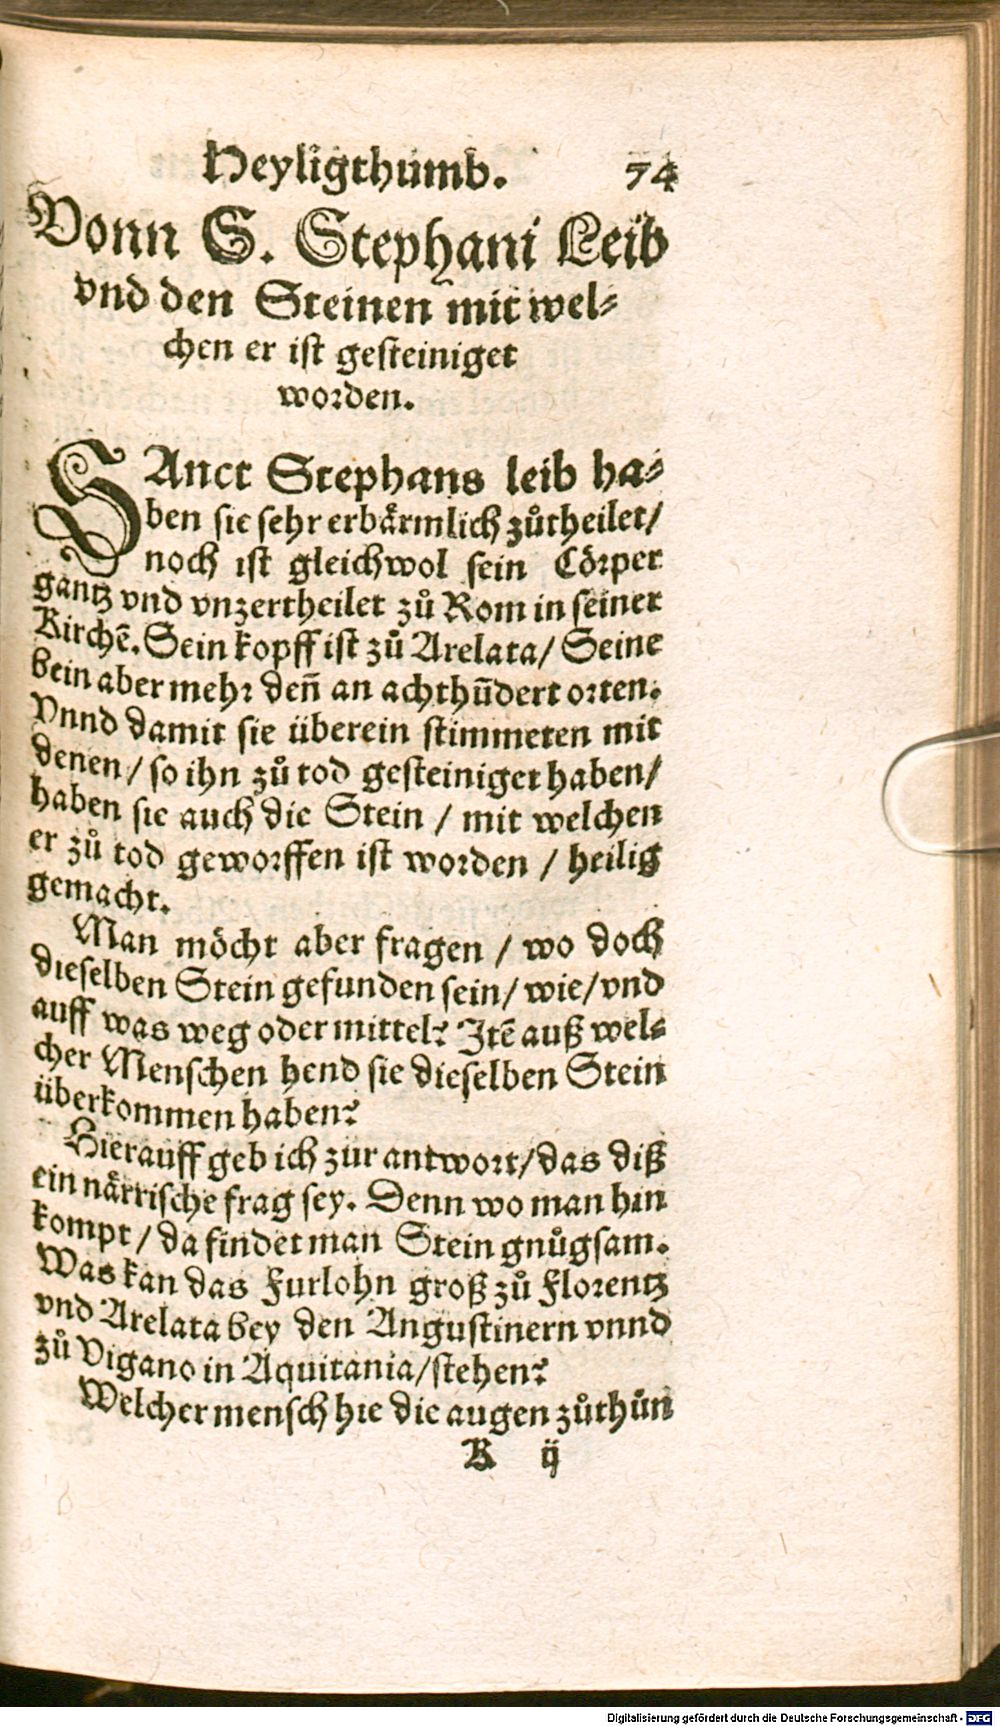 Heyligthumb. 74
Vonn S. Stephani Leib
vnd den Steinen mit wel⸗
chen er ist gesteiniget
worden.
SAnct Stephans leib ha⸗
ben sie sehr erbaͤrmlich zuͤtheilet/
noch ist gleichwol sein Coͤrper
gantz vnd vnzertheilet zuͦ Rom in seiner
Kirchē. Sein kopff ist zuͦ Arelata/ Seine
bein aber mehr deñ an achthūdert orten.
Vnnd damit sie überein stimmeten mit
denen/ so ihn zuͦ tod gesteiniget haben/
haben sie auch die Stein / mit welchen
er zuͦ tod geworffen ist worden / heilig
gemacht.
Man möcht aber fragen / wo doch
dieselben Stein gefunden sein/ wie/ vnd
auff was weg oder mittel? Itē auß wel⸗
cher Menschen hend sie dieselben Stein
überkommen haben?
Hierauff geb ich zur antwort/ das diß
ein naͤrrische frag sey. Denn wo man hin
kompt/ da findet man Stein gnuͦgsam.
Was kan das Furlohn groß zuͦ Florentz
vnd Arelata bey den Augustinern vnnd
zuͦ Vigano in Aquitania/ stehen?
Welcher mensch hie die augen zuͦthuͦn
K ij
Digitalisierung gefördert durch die Deutsche Forschungsgemeinschaft - DFG